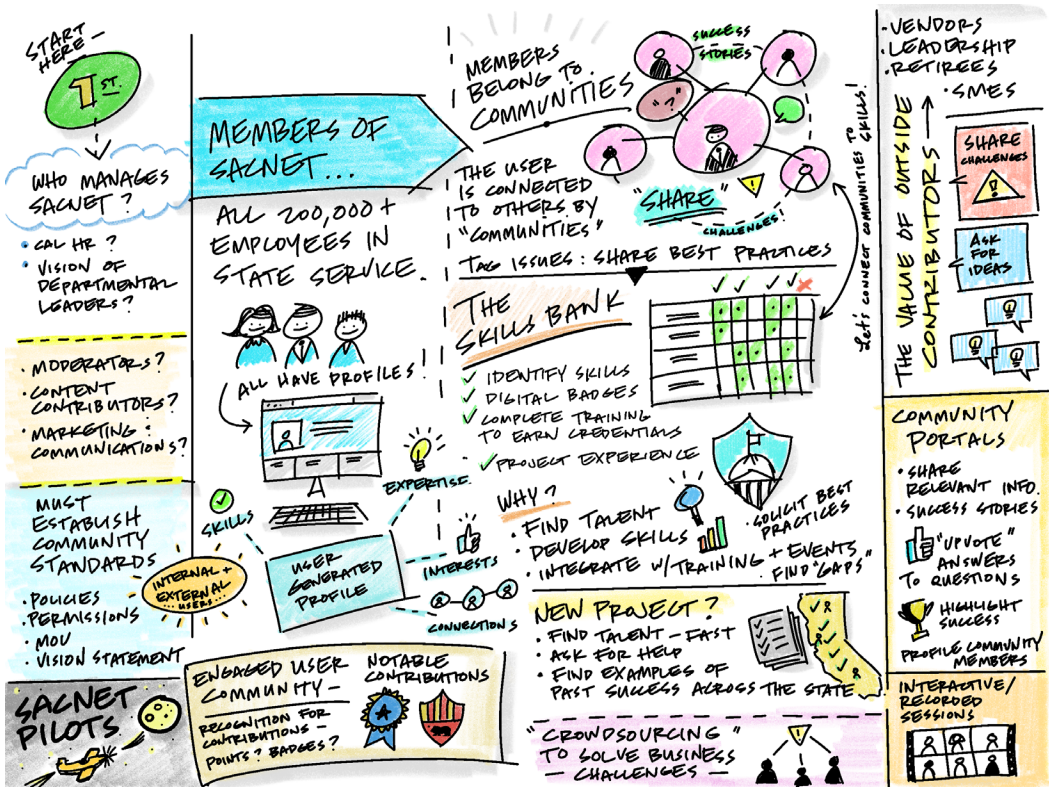 START
HERE —
1ST.
WHO MANAGES
SACNET?
• CAL HR ?
• VISION OF
DEPARTMENTAL
LEADERS?
• MODERATORS?
• CONTENT
CONTRIBUTORS?
• MARKETING :
COMMUNICATIONS?
MUST
ESTABLISH
COMMUNITY
STANDARDS
• POLICIES
• PERMISSIONS
• MOU
• VISION STATEMENT
INTERNAL +
EXTERNAL
... USERS ...
SACNET
PILOTS
MEMBERS OF
SACNET...
ALL 200,000+
EMPLOYEES IN
STATE SERVICE.
ALL HAVE PROFILES!
SKILLS
EXPERTISE
USER
GENERATED
PROFILE
INTERESTS
CONNECTIONS
ENGAGED USER
COMMUNITY —
RECOGNITION FOR
CONTRIBUTIONS —
POINTS? BADGES?
NOTABLE
CONTRIBUTIONS
MEMBERS
BELONG TO
COMMUNITIES
THE USER
IS CONNECTED
TO OTHERS BY
"COMMUNITIES"
SUCCESS
STORIES
"?"
"SHARE"
CHALLENGES!
TAG ISSUES : SHARE BEST PRACTICES
Let's CONNECT COMMUNITIES TO SKILLS!
THE
SKILLS BANK
✓ IDENTIFY SKILLS
✓ DIGITAL BADGES
✓ COMPLETE TRAINING
TO EARN CREDENTIALS
✓ PROJECT EXPERIENCE
WHY?
• FIND TALENT
• DEVELOP SKILLS
• INTEGRATE W/TRAINING + EVENTS
• SOLICIT BEST
PRACTICES
• FIND "GAPS"
NEW PROJECT ?
• FIND TALENT — FAST
• ASK FOR HELP
• FIND EXAMPLES OF
PAST SUCCESS ACROSS THE STATE
"CROWDSOURCING"
TO SOLVE BUSINESS
— CHALLENGES —
• VENDORS
• LEADERSHIP
• RETIREES
• SMES
THE VALUE OF OUTSIDE
CONTRIBUTORS
SHARE
CHALLENGES
ASK
FOR
IDEAS
COMMUNITY
PORTALS
• SHARE
RELEVANT INFO.
• SUCCESS STORIES
"UPVOTE"
ANSWERS
TO QUESTIONS
HIGHLIGHT
SUCCESS
PROFILE COMMUNITY
MEMBERS
INTERACTIVE/
RECORDED
SESSIONS